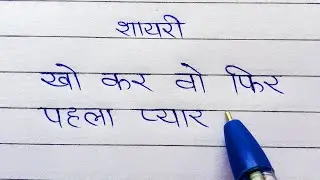 शायरी
खो कर वो फिर
पहला प्यार